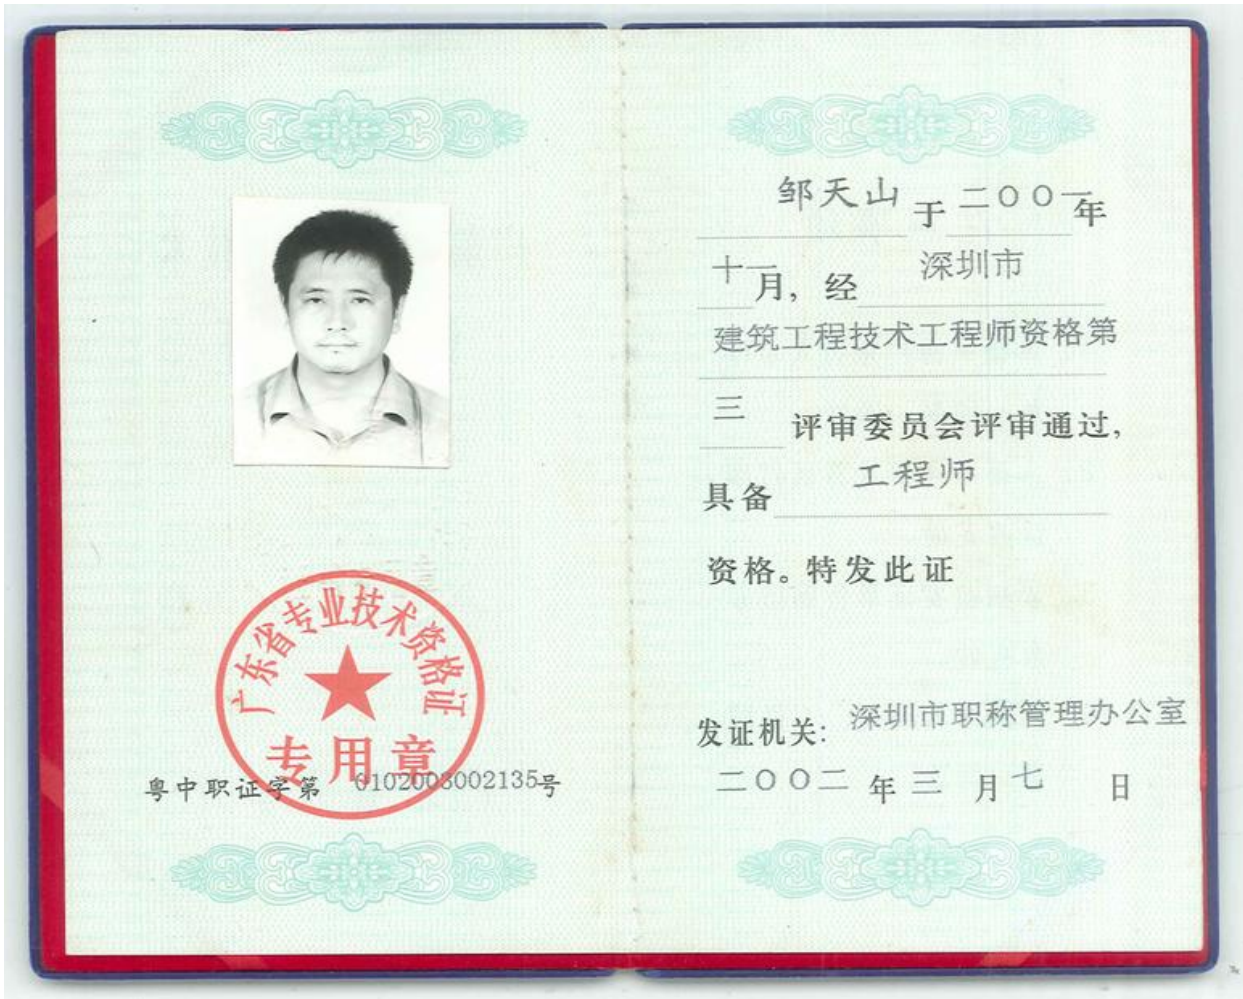 广东省专业技术资格证
专用章
粤中职证字第 0102003002135号
邹天山 于 二〇〇一年
十一月，经 深圳市
建筑工程技术工程师资格第
三 评审委员会评审通过，
具备 工程师
资格。特发此证
发证机关：深圳市职称管理办公室
二〇〇二 年 三 月 七 日